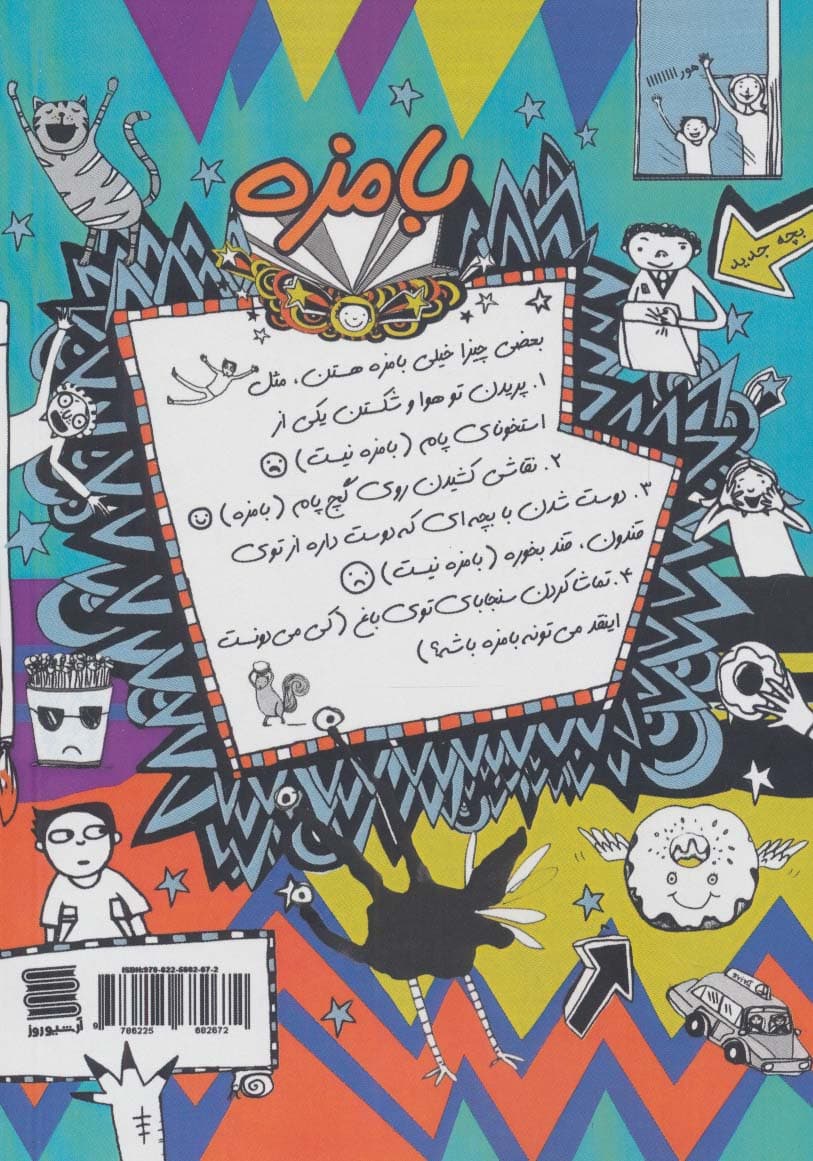 هور ااااااا
بامزه
بچه جدید
بعضی چیزا خیلی بامزه هستن، مثل
۱. پریدن تو هوا و شکستن یکی از
استخونای پام (بامزه نیست)
۲. نقاشی کشیدن روی گچ پام (بامزه)
۳. دوست شدن با بچه‌ای که دوست داره از توی
قندون، قند بخوره (بامزه نیست)
۴. تماشا کردن سنجابای توی باغ (کی می دونست
اینقد می تونه بامزه باشه؟)
ISBN:978-622-6602-67-2
9 786226 602672